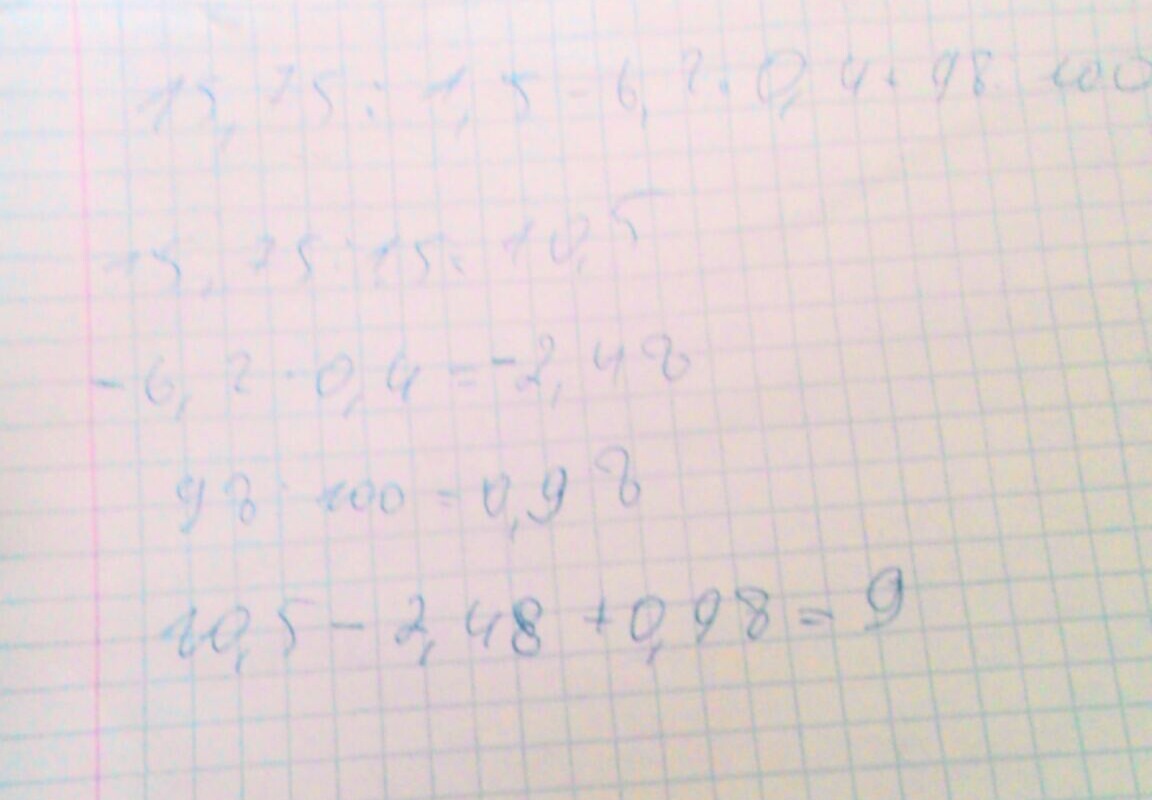 15,75 : 1,5 - 6,2 · 0,4 + 98 : 100
15,75 : 15 = 10,5
- 6,2 · 0,4 = -2,48
98 : 100 = 0,98
10,5 - 2,48 + 0,98 = 9